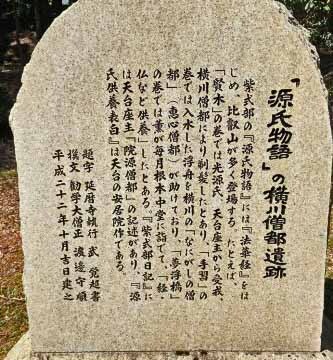 「源氏物語」の横川僧都遺跡
紫式部の『源氏物語』には『法華経』をは
じめ、比叡山が多く登場する。たとえば、
「賢木」の巻では光源氏、天台座主から受戒、
横川僧都により剃髪したとあり、「手習」の
巻では入水した浮舟を横川の「なにがしの僧
都」（恵心僧都）が助けており、「夢浮橋」
の巻では薫が毎月根本中堂に詣でて、「経・
仏など供養」したとある。『紫式部日記』に
は天台座主「院源僧都」の記述があり、『源
氏供養表白』は天台の安居院作である。
題字 延暦寺執行 武 覚超書
撰文 勧学大僧正 渡邉守順
平成二十二年十月吉日建之